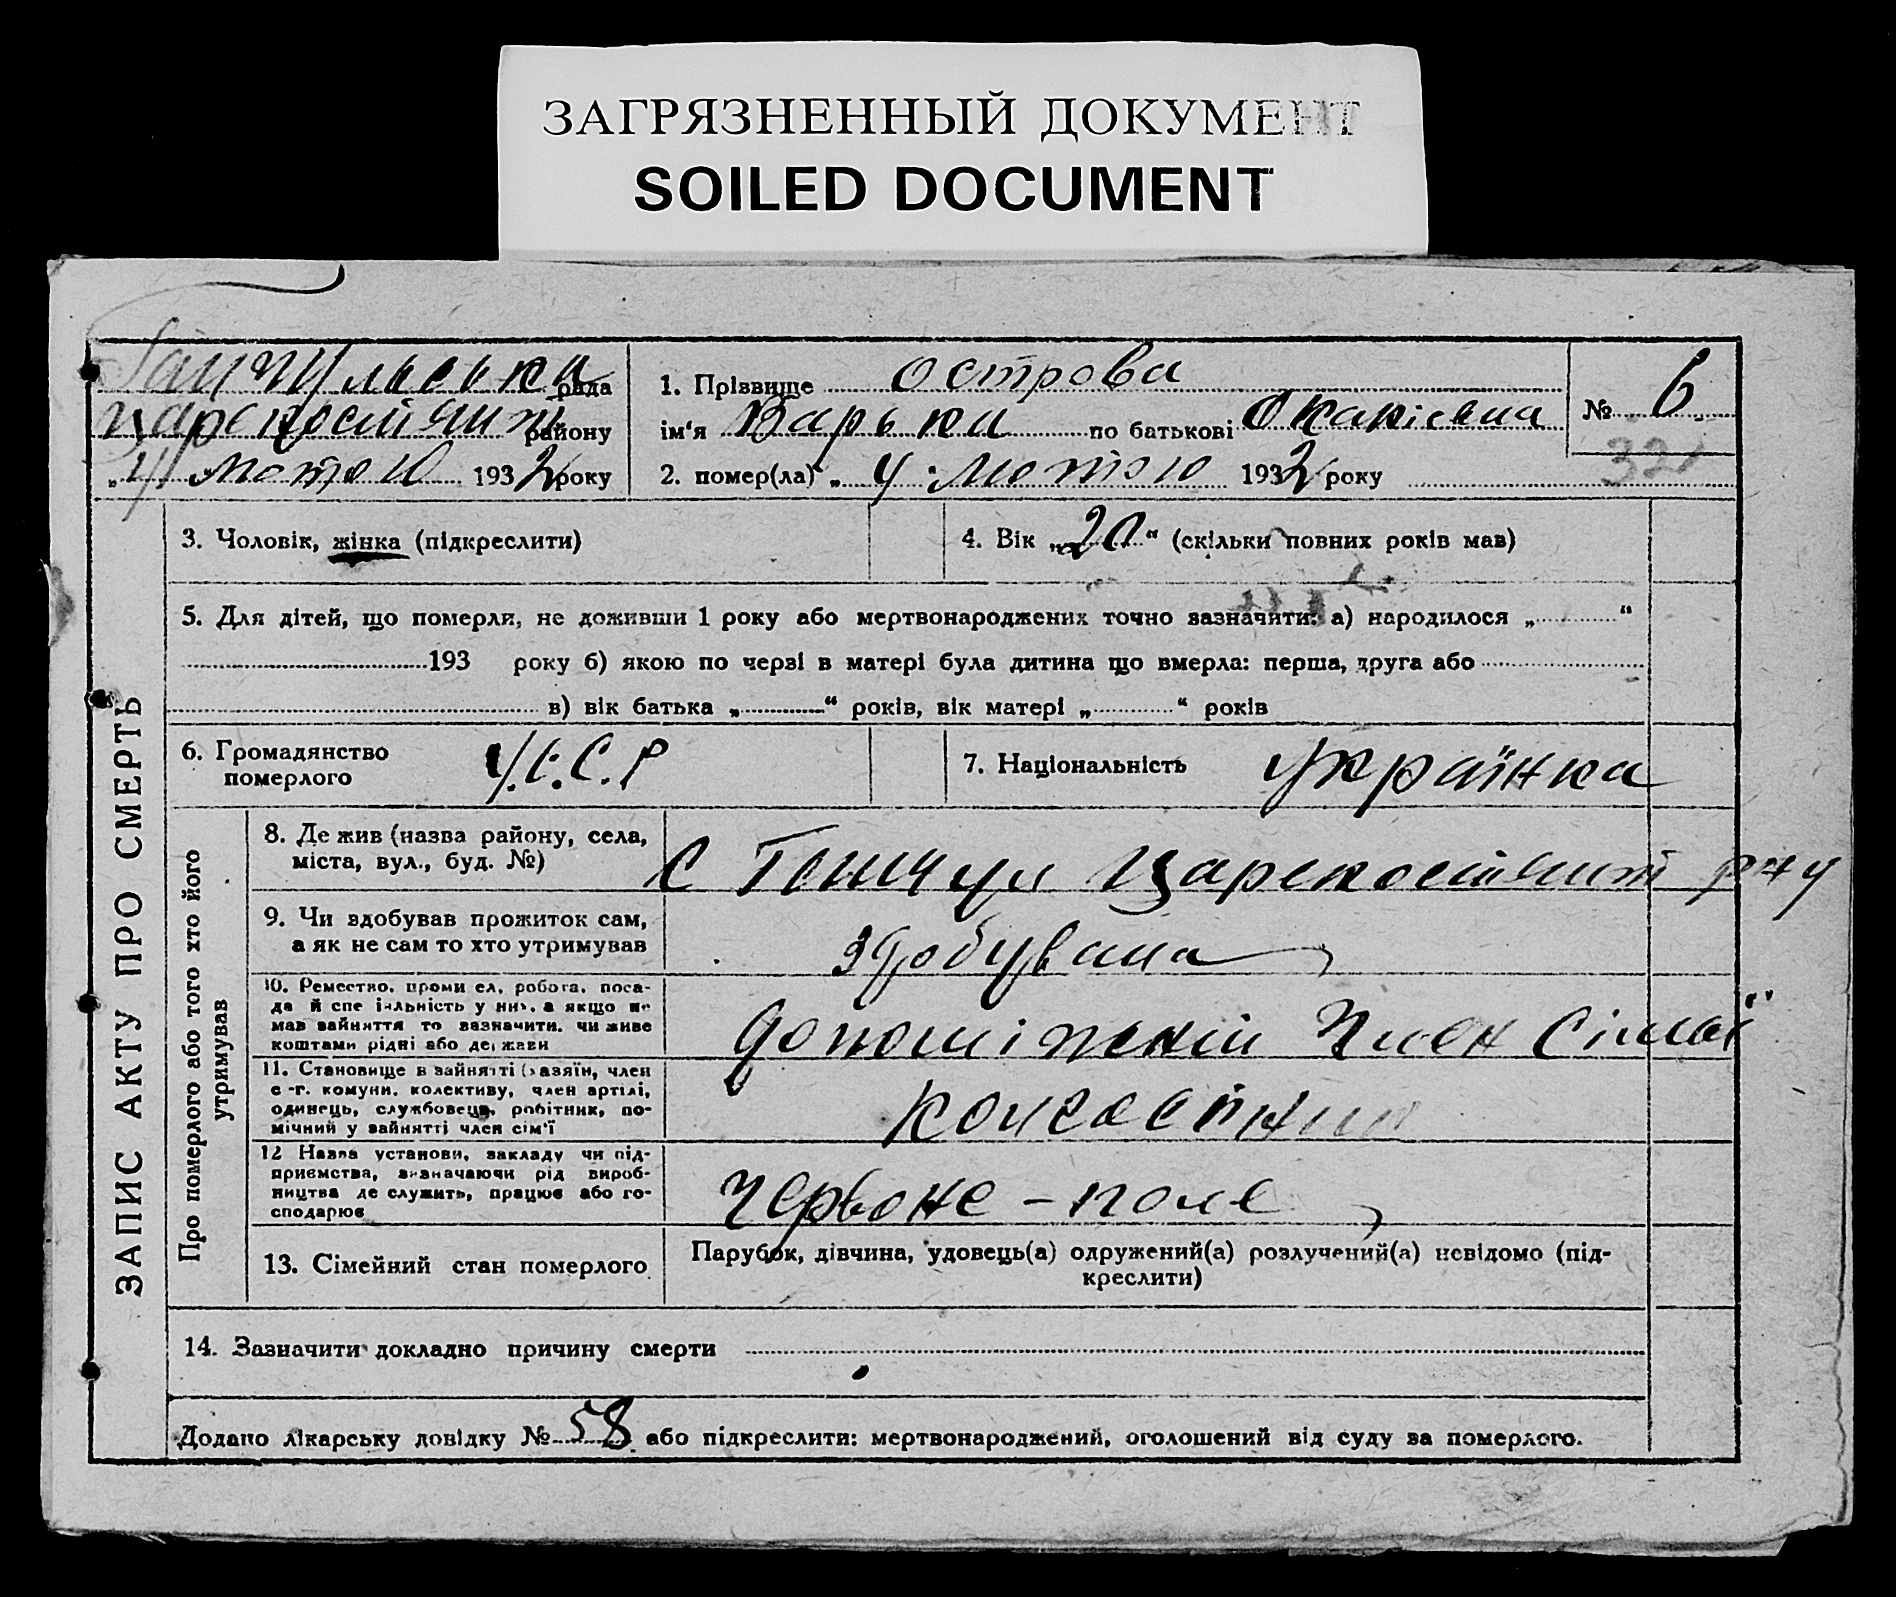 ЗАГРЯЗНЕННЫЙ ДОКУМЕНТ
SOILED DOCUMENT
рада
району
„4" лютого 1932 року
1. Прізвище Острова
ім'я Варька по батькові
2. помер(ла) „4" лютого 1932 року
№ 6
32
ЗАПИС АКТУ ПРО СМЕРТЬ
3. Чоловік, жінка (підкреслити)
4. Вік „20" (скільки повних років мав)
5. Для дітей, що померли, не доживши 1 року або мертвонароджених точно зазначити: а) народилося „ "
193 року б) якою по черзі в матері була дитина що вмерла: перша, друга або
в) вік батька „ " років, вік матері „ " років
6. Громадянство
померлого
У.С.С.Р
7. Національність Українка
Про померлого або того хто його
утримував
8. Де жив (назва району, села,
міста, вул., буд. №)
с р-ну
9. Чи здобував прожиток сам,
а як не сам то хто утримував
здобувала
10. Ремество, промисел, робота, поса-
да й спеціяльність у ній, а якщо не
мав зайняття то зазначити, чи живе
коштами рідні або держави
допоміжній член сімої
11. Становище в зайнятті (хазяїн, член
с.-г. комуни, колективу, член артілі,
одинець, службовець, робітник, по-
мічний у зайнятті член сім'ї
колгоспник
12 Назва установи, закладу чи під-
приємства, визначаючи рід вироб-
ництва де служить, працює або го-
сподарює
Червоне - поле
13. Сімейний стан померлого
Парубок, дівчина, удовець(а) одружений(а) розлучений(а) невідомо (під-
креслити)
14. Зазначити докладно причину смерти
Додано лікарську довідку № 58 або підкреслити: мертвонароджений, оголошений від суду за померлого.